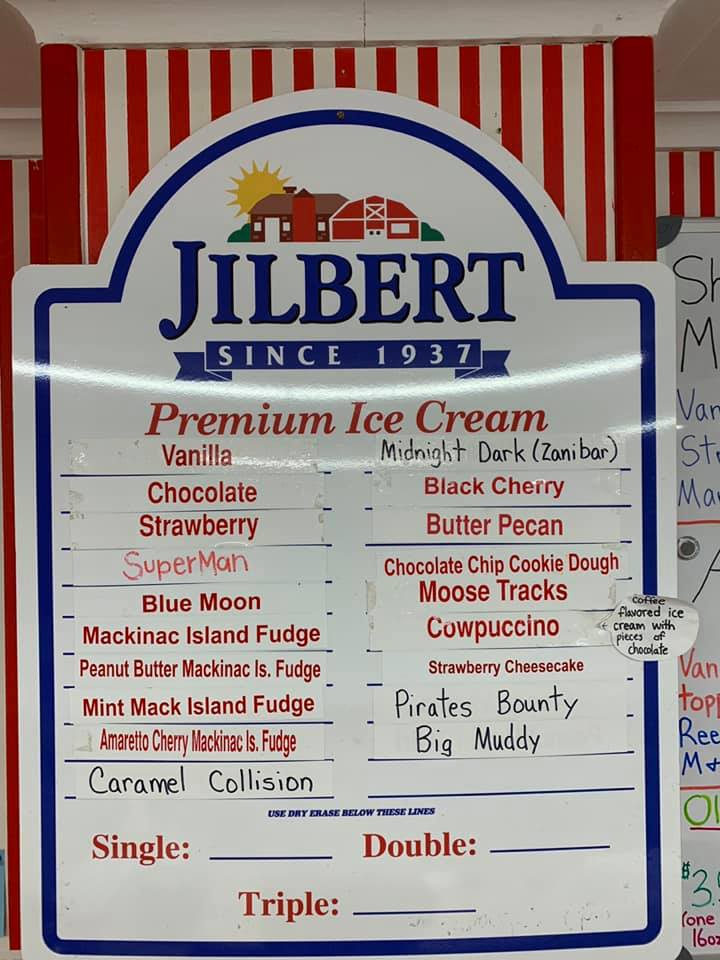 JILBERT
SINCE 1937
Premium Ice Cream
Vanilla
Chocolate
Strawberry
SuperMan
Blue Moon
Mackinac Island Fudge
Peanut Butter Mackinac Is. Fudge
Mint Mack Island Fudge
Amaretto Cherry Mackinac Is. Fudge
Caramel Collision
Midnight Dark (Zanibar)
Black Cherry
Butter Pecan
Chocolate Chip Cookie Dough
Moose Tracks
Cowpuccino
coffee
flavored ice
cream with
pieces of
chocolate
Strawberry Cheesecake
Pirates Bounty
Big Muddy
USE DRY ERASE BELOW THESE LINES
Single:
Double:
Triple:
Sh
M
Van
Str
Ma
Van
topp
Ree
M+
Ol
$3.
(one
16oz